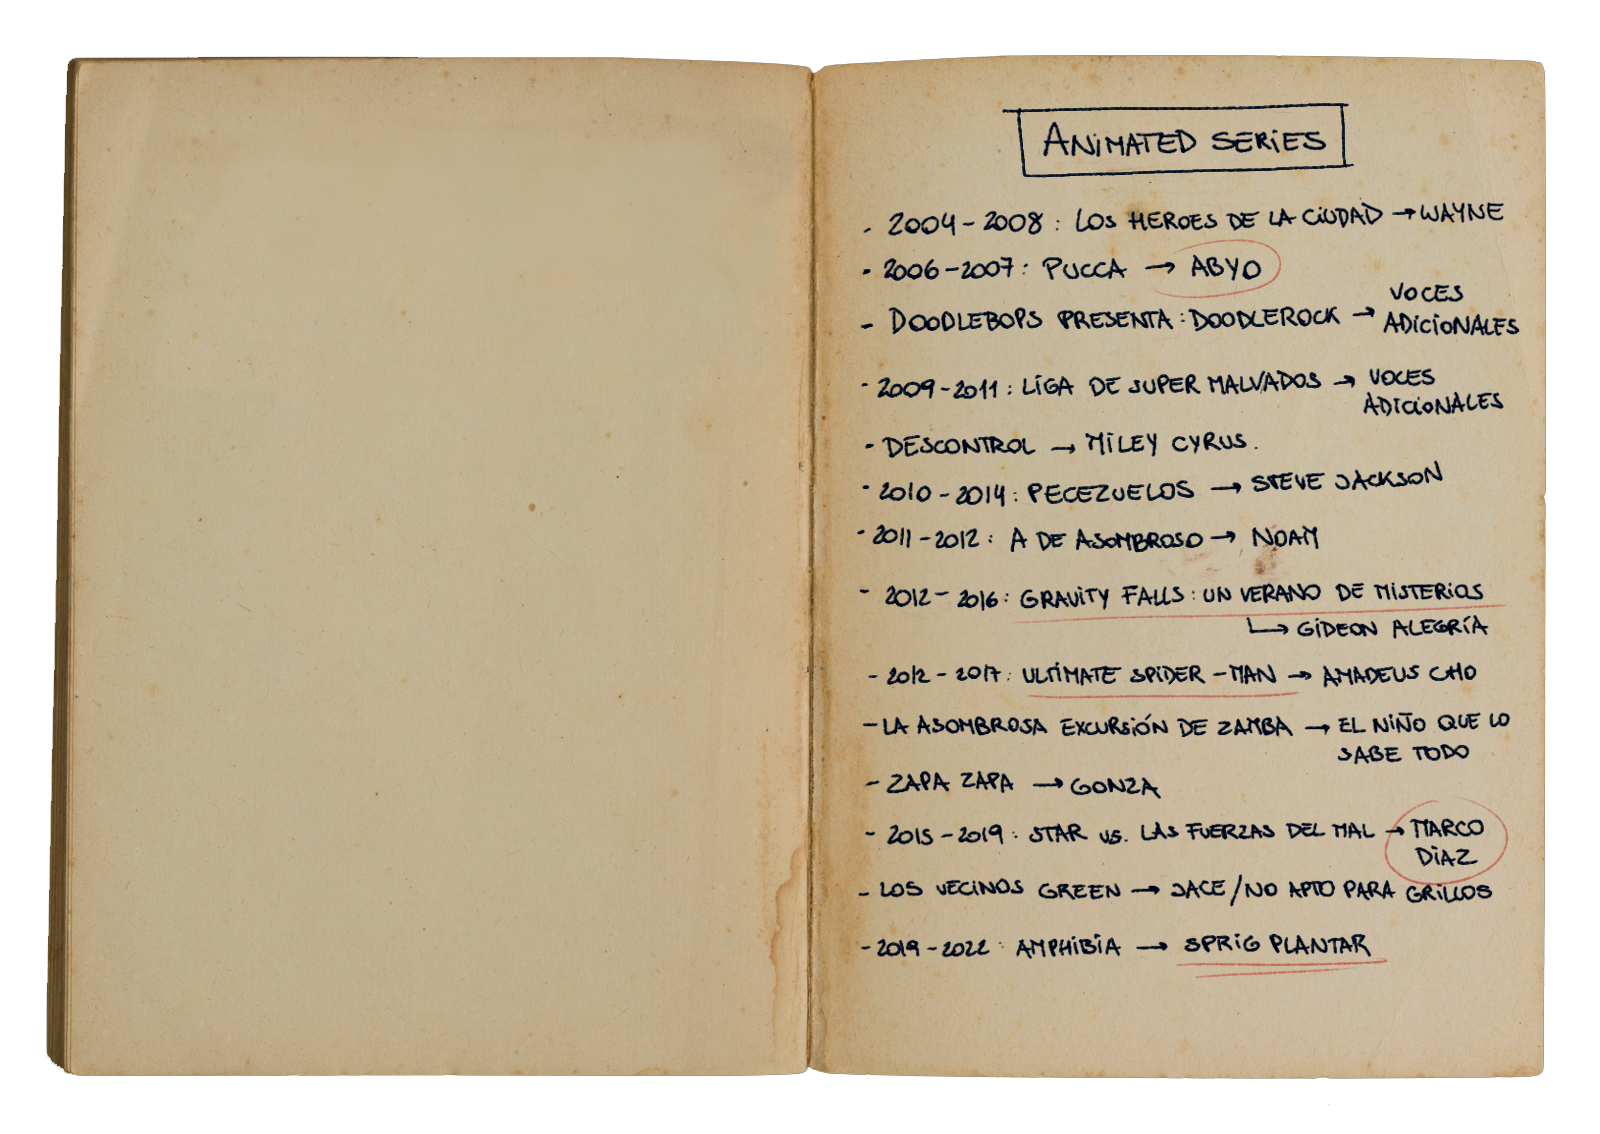 ANIMATED SERIES
- 2004-2008: LOS HEROES DE LA CIUDAD → WAYNE
- 2006-2007: PUCCA → ABYO
- DOODLEBOPS PRESENTA: DOODLEROCK → VOCES
ADICIONALES
- 2009-2011: LIGA DE SUPER MALVADOS → VOCES
ADICIONALES
- DESCONTROL → MILEY CYRUS.
- 2010-2014: PECEZUELOS → STEVE JACKSON
- 2011-2012: A DE ASOMBROSO → NOAM
- 2012-2016: GRAVITY FALLS: UN VERANO DE MISTERIOS
→ GIDEON ALEGRÍA
- 2012-2017: ULTIMATE SPIDER-MAN → AMADEUS CHO
- LA ASOMBROSA EXCURSIÓN DE ZAMBA → EL NIÑO QUE LO
SABE TODO
- ZAPA ZAPA → GONZA
- 2015-2019: STAR vs. LAS FUERZAS DEL MAL → MARCO
DIAZ
- LOS VECINOS GREEN → JACE/NO APTO PARA GRILLOS
- 2019-2022: AMPHIBIA → SPRIG PLANTAR